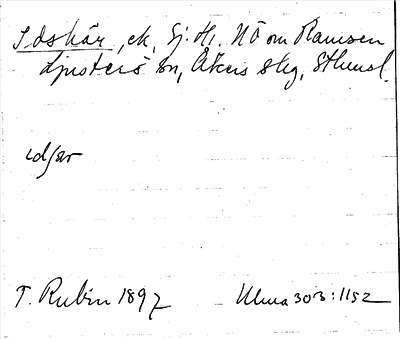 Idskär, ek, Sj. H. NO om Ramsen
Ljusterö sn, Åkers skg, Sthmsl.
idsar
T. Rubin 1897 Ulma 303:1152